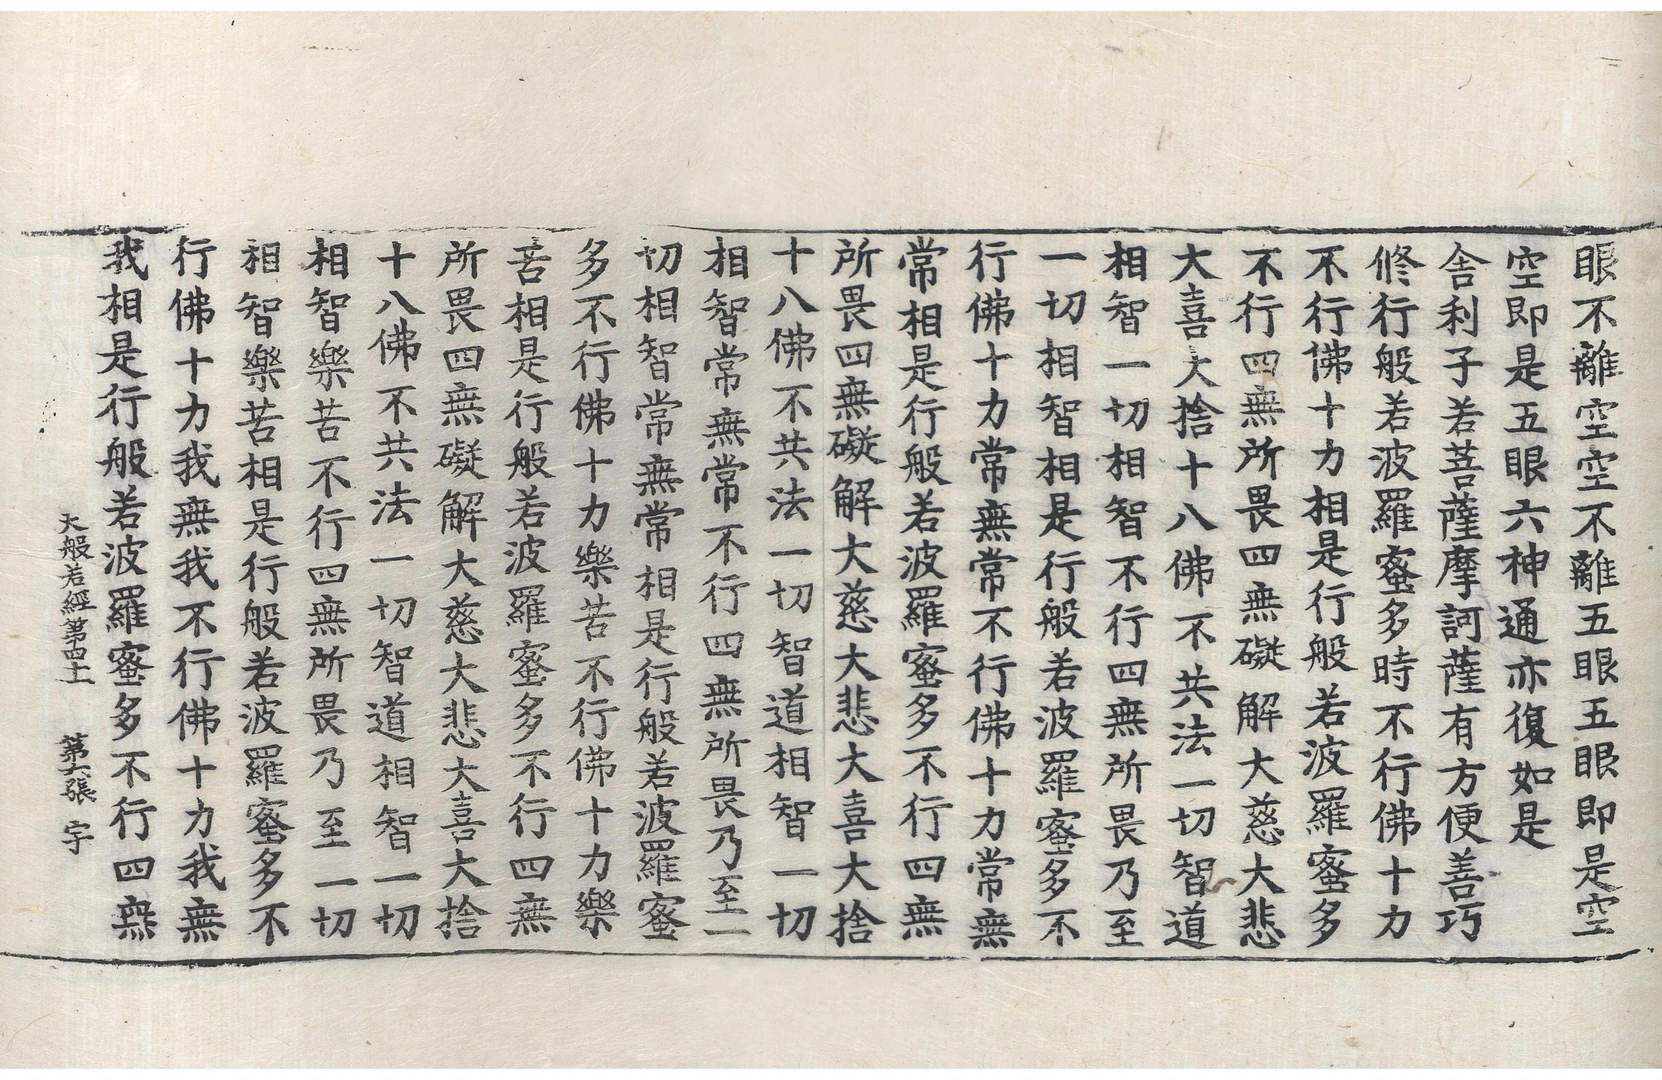 眼不離空空不離五眼五眼即是空
空即是五眼六神通亦復如是
舍利子若菩薩摩訶薩有方便善巧
修行般若波羅蜜多時不行佛十力
不行佛十力相是行般若波羅蜜多
不行四無所畏四無礙解大慈大悲
大喜大捨十八佛不共法一切智道
相智一切相智不行四無所畏乃至
一切相智相是行般若波羅蜜多不
行佛十力常無常不行佛十力常無
常相是行般若波羅蜜多不行四無
所畏四無礙解大慈大悲大喜大捨
十八佛不共法一切智道相智一切
相智常無常不行四無所畏乃至一
切相智常無常相是行般若波羅蜜
多不行佛十力樂苦不行佛十力樂
苦相是行般若波羅蜜多不行四無
所畏四無礙解大慈大悲大喜大捨
十八佛不共法一切智道相智一切
相智樂苦不行四無所畏乃至一切
相智樂苦相是行般若波羅蜜多不
行佛十力我無我不行佛十力我無
我相是行般若波羅蜜多不行四無
大般若經第四十 第六張 宇